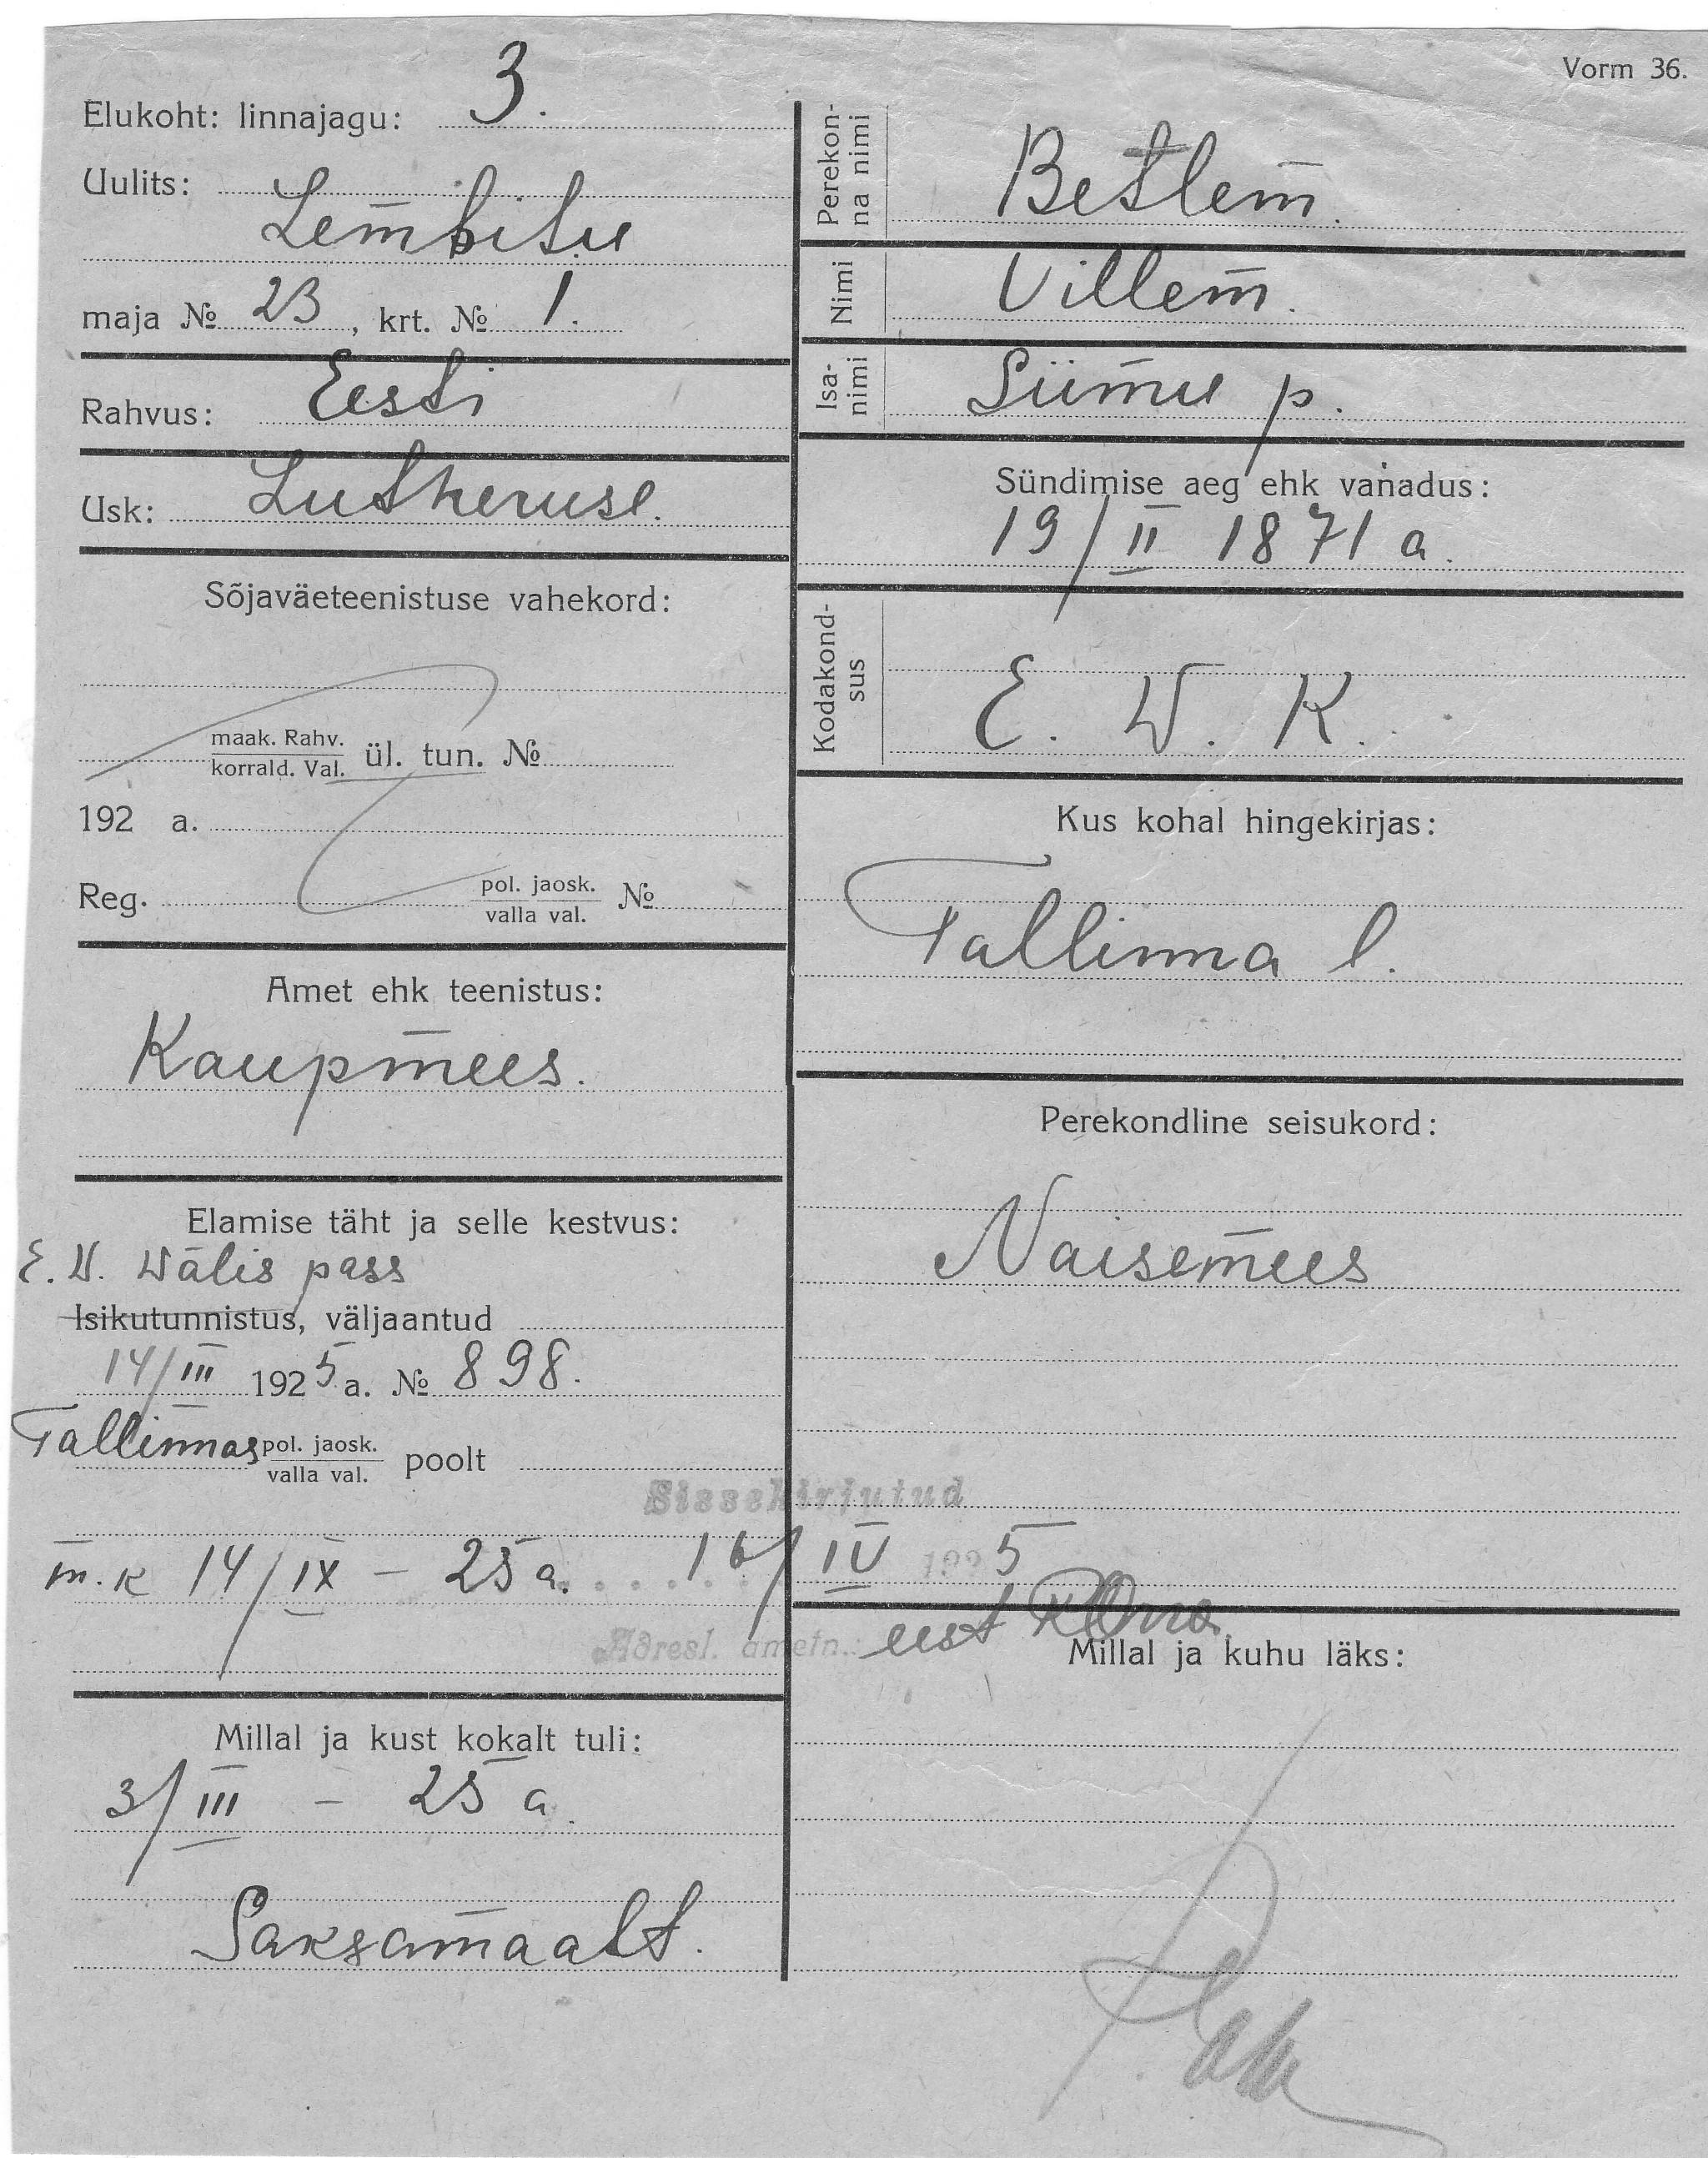 Vorm 36.
Elukoht: linnajagu: 3.
Uulits:
Lembitu
maja № 23, krt. № 1.
Rahvus: Eesti
Usk: Lutheruse.
Sõjaväeteenistuse vahekord:
maak. Rahv.
korrald. Val. ül. tun. №
192 a.
Reg. pol. jaosk.
valla val. №
Amet ehk teenistus:
Kaupmees.
Elamise täht ja selle kestvus:
E. W. Wälis pass
Isikutunnistus, väljaantud
14/III 1925 a. № 898.
Tallinnas pol. jaosk.
valla val. poolt
m.k 14/IX – 25 a.
Millal ja kust kokalt tuli:
3/III – 25 a.
Saksamaalt.
Perekon-
na nimi
Betlem.
Nimi
Villem.
Isa-
nimi
Siimu p.
Sündimise aeg ehk vanadus:
19/II 1871 a.
Kodakond-
sus
E. W. K.
Kus kohal hingekirjas:
Tallinna l.
Perekondline seisukord:
Naisemees
Sissekirjutud
16/IV 1925
Adresl. ametn.: eest
Millal ja kuhu läks: